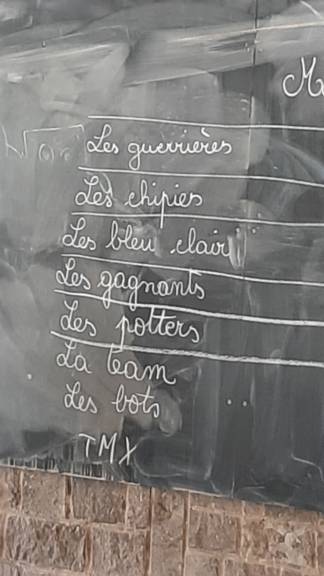 Les guerrières
Les chipies
Les bleu clair
Les gagnants
Les potters
La team
Les bots
TMX